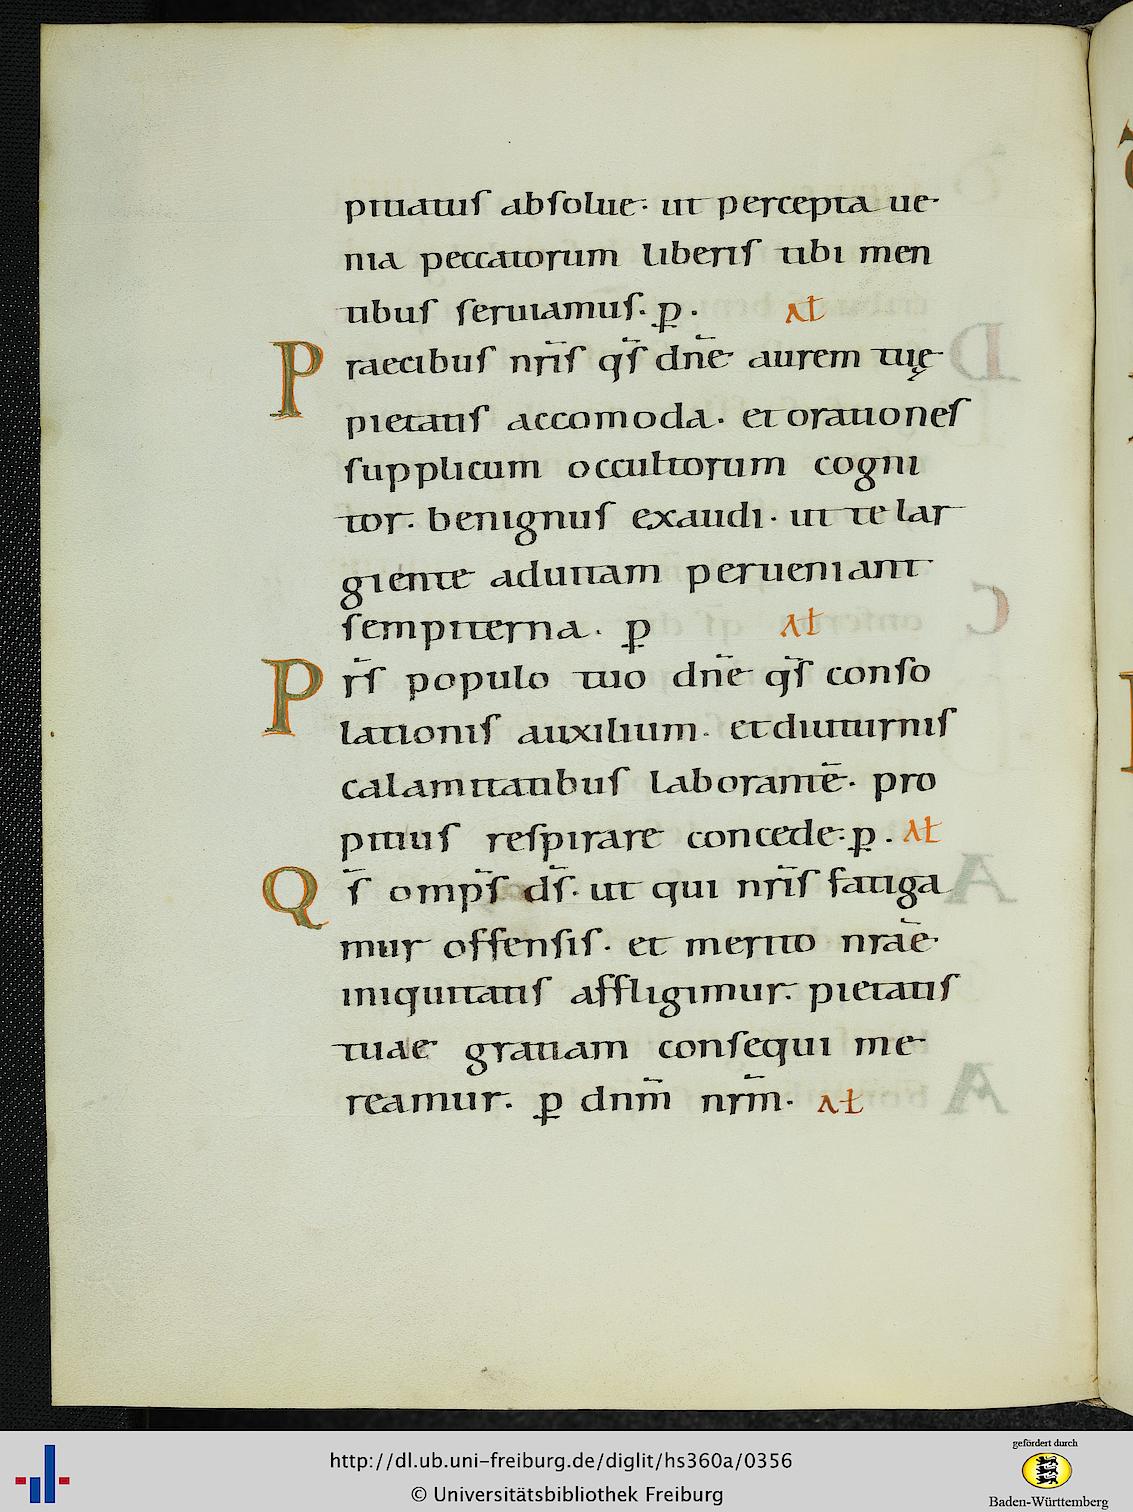 pitiatus absolue· ut percepta ue·
nia peccatorum liberis tibi men
tibus seruiamus. p̱. At
Praecibus nr̄is q̄s dn̄e aurem tuę
pietatis accomoda. et orationes
supplicum occultorum cogni
tor. benignus exaudi. ut te lar
giente ad uitam perueniant
sempiterna. p̱ At
Pr̄s populo tuo dn̄e q̄s conso
lationis auxilium. et diuturnis
calamitatibus laborantē. pro
pitius respirare concede. p̱. At
Qs̄ omp̄s ds̄. ut qui nr̄is fatiga
mur offensis. et merito nrāe
iniquitatis affligimur. pietatis
tuae gratiam consequi me
reamur. p̱ dnm̄ nrm̄. At
http://dl.ub.uni-freiburg.de/diglit/hs360a/0356
© Universitätsbibliothek Freiburg
gefördert durch
Baden-Württemberg